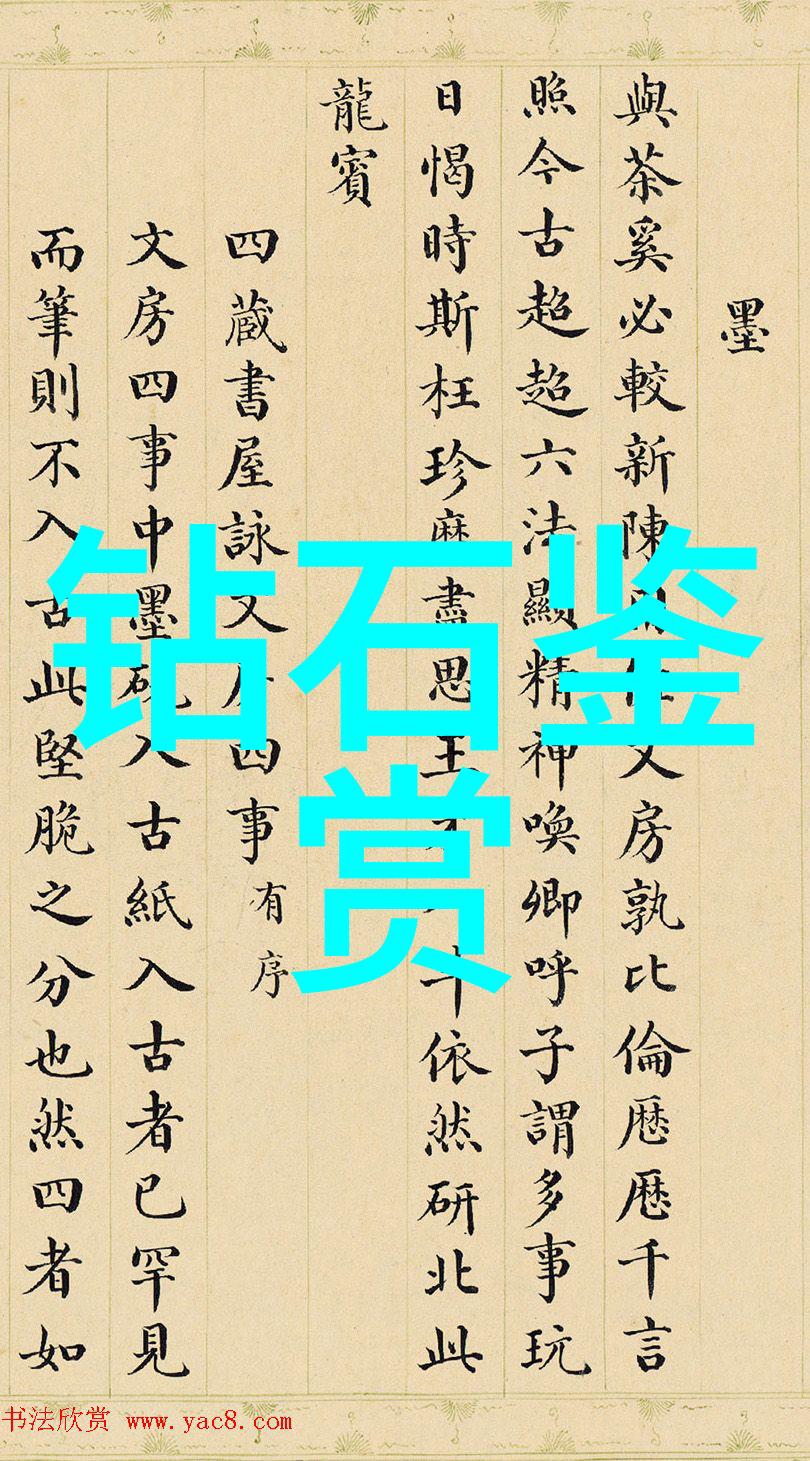 墨
與茶奚必較新陳文房孰比倫歷歷千言
照今古超超六法顯精神喚卿呼子謂多事玩
日愒時斯枉珍磨盡思王斗依然研北此
龍賓
四藏書屋詠文房四事有序
文房四事中墨硯入古紙入古者已罕見
而筆則不入古此堅脆之分也然四者如
钻石鉴
赏
书法欣赏 www.yac8.com